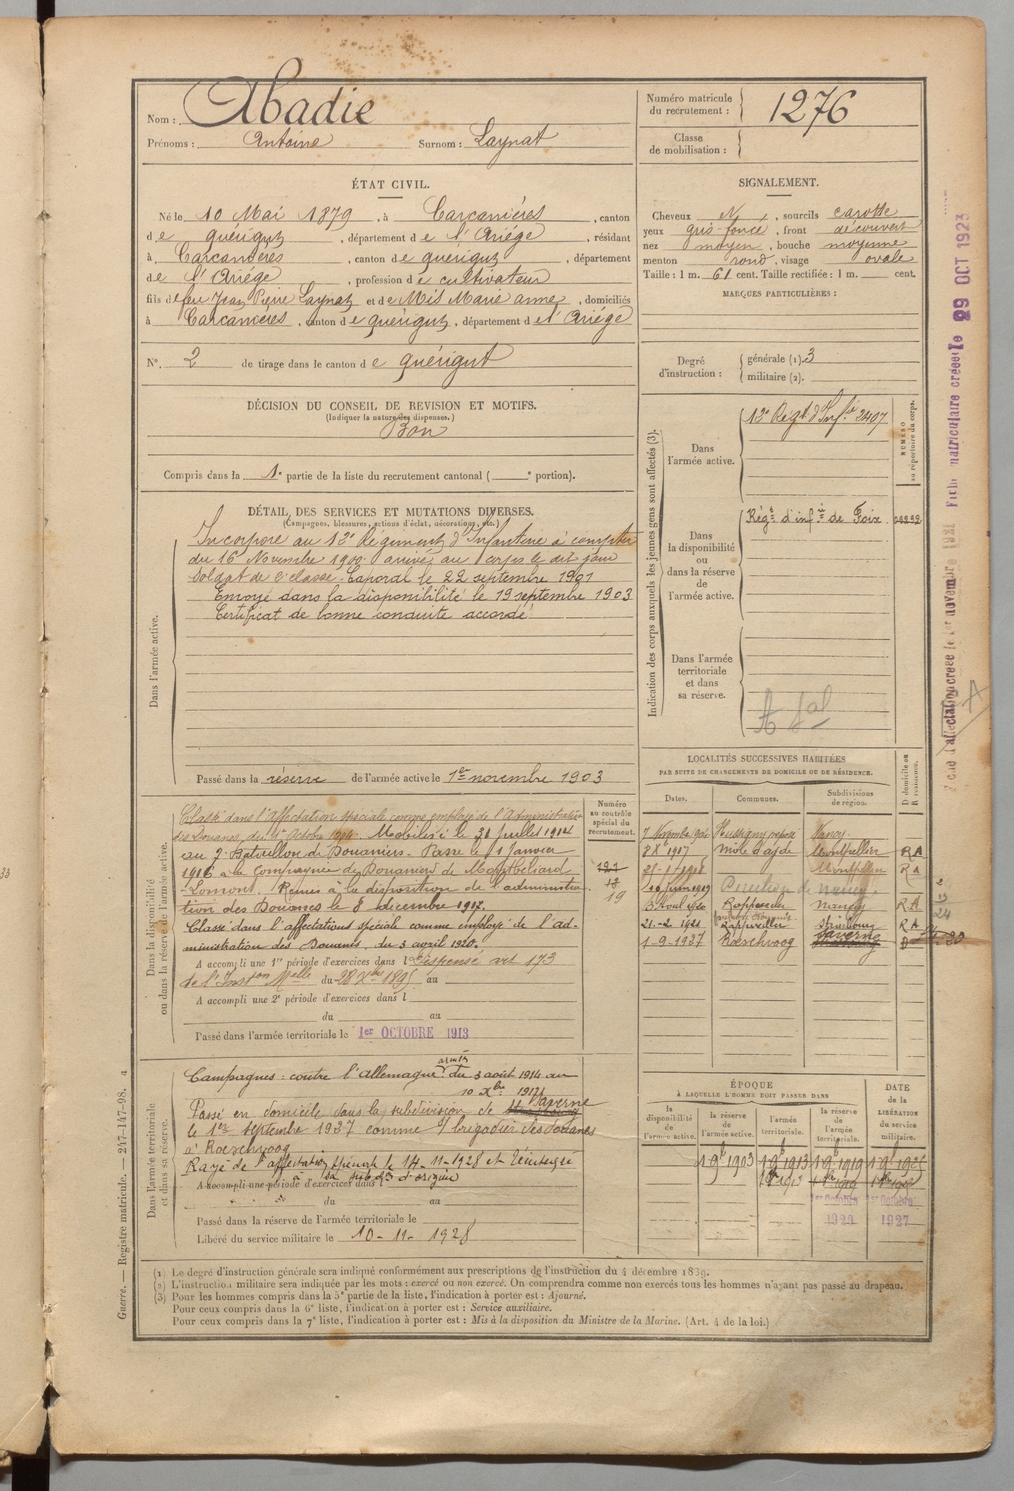 Nom : Abadie
Prénoms : Antoine Surnom : Laynat
Numéro matricule du recrutement : 1276
Classe de mobilisation :
ÉTAT CIVIL.
Né le 10 Mai 1879, à Carcanières, canton
de quérigut, département de l'Ariége, résidant
à Carcanières, canton de quérigut, département
de l'Ariége, profession de cultivateur
fils de feu Jean Pierre Laynat et de Mis Marie anne, domiciliés
à Carcanières, canton de quérigut, département de l'Ariége
N°. 2 de tirage dans le canton de quérigut
SIGNALEMENT.
Cheveux N, sourcils carotte
yeux gris foncé, front découvert
nez moyen, bouche moyenne
menton rond, visage ovale
Taille : 1 m. 61 cent. Taille rectifiée : 1 m. cent.
MARQUES PARTICULIÈRES :
Degré d'instruction : générale (1). 3
militaire (2).
DÉCISION DU CONSEIL DE REVISION ET MOTIFS.
(Indiquer la nature des dispenses.)
Bon
Compris dans la 1e partie de la liste du recrutement cantonal ( e portion).
DÉTAIL DES SERVICES ET MUTATIONS DIVERSES.
(Campagnes, blessures, actions d'éclat, décorations, etc.)
Dans l'armée active.
Incorporé au 12e Régiment d'Infanterie à compter
du 16 Novembre 1900 arrivé au corps le dit jour
Soldat de 2e classe. Caporal le 22 septembre 1901
Envoyé dans la disponibilité le 19 septembre 1903
Certificat de bonne conduite accordé
Passé dans la réserve de l'armée active le 1er novembre 1903
Indication des corps auxquels les jeunes gens sont affectés (3).
NUMÉRO au répertoire du corps.
Dans l'armée active.
12e Régt d'Infie 2407
Dans la disponibilité ou dans la réserve de l'armée active.
Régt d'infie de Foix
Dans l'armée territoriale et dans sa réserve.
Dans la disponibilité ou dans la réserve de l'armée active.
Classé dans l'Affectation spéciale comme employé de l'Administration
des Douanes, du 1er Octobre Mobilisé le 31 juillet 1914
au 2e Bataillon de Douaniers. Passé le 1 Janvier
1916 à la compagnie de Douaniers de Montbéliard
-Lomont. Remis à la disposition de l'administra-
tion des Douanes le 8 décembre 1917.
Classé dans l'affectations spéciale comme employé de l'ad-
ministration des Douanes, du 3 avril 1920.
A accompli une 1re période d'exercices dans l Dispensé art 173
de l'Inston Melle du 28 Xbre 1895 au
A accompli une 2e période d'exercices dans l
du au
Passé dans l'armée territoriale le 1er OCTOBRE 1913
Numéro au contrôle spécial du recrutement.
19
LOCALITÉS SUCCESSIVES HABITÉES
PAR SUITE DE CHANGEMENTS DE DOMICILE OU DE RÉSIDENCE.
Dates. Communes. Subdivisions de région. D domicile ou R résidence.
7 Novembre 1904 Hussigny Nancy
8 X 1917 Môle d'agde Montpellier R A
Montpellier R A
Direction de nancy
Nancy R A
21-2 1921 Rappwiller Strasbourg R A
1-9-1937 Roeschwoog Saverne D
Dans l'armée territoriale et dans sa réserve.
Campagnes : contre l'allemagne armée du 3 août 1914 au
10 Xbre 1917
Passé en domicile dans la subdivision de Saverne
le 1er septembre 1937 comme s/brigadier des douanes
à Roeschwoog
Rayé de l'affectation spéciale le 14-11-1928 et réintégré
à la subd d'origine
A accompli une période d'exercices dans l
du au
Passé dans la réserve de l'armée territoriale le
Libéré du service militaire le 10-11-1928
ÉPOQUE
À LAQUELLE L'HOMME DOIT PASSER DANS
la disponibilité de l'armée active. la réserve de l'armée active. l'armée territoriale. la réserve de l'armée territoriale. DATE de la LIBÉRATION du service militaire.
1 9b 1903 1 9b 1913 1 9b 1919 1 9b 1925
1er Octobre 1er Octobre
1927
(1) Le degré d'instruction générale sera indiqué conformément aux prescriptions de l'instruction du 4 décembre 1889.
(2) L'instruction militaire sera indiquée par les mots : exercé ou non exercé. On comprendra comme non exercés tous les hommes n'ayant pas passé au drapeau.
(3) Pour les hommes compris dans la 5e partie de la liste, l'indication à porter est : Ajourné.
Pour ceux compris dans la 6e liste, l'indication à porter est : Service auxiliaire.
Pour ceux compris dans la 7e liste, l'indication à porter est : Mis à la disposition du Ministre de la Marine. (Art. 4 de la loi.)
Guerre. — Registre matricule. — 247-147-98.
Fiche matriculaire créée le 29 OCT 1923